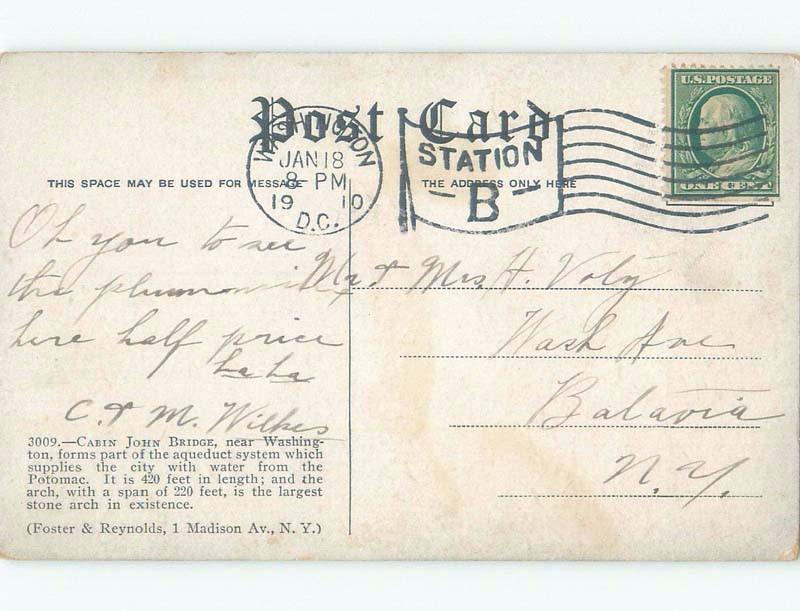 Post Card
WASHINGTON
JAN 18
8 - PM
19 10
D.C.
STATION
- B -
U.S. POSTAGE
ONE CENT
THIS SPACE MAY BE USED FOR MESSAGE
THE ADDRESS ONLY HERE
Oh you to see
the
here half price
ha ha
C. & M. Wilkes
Mr & Mrs H. Voly
Wash Ave
Batavia
N.Y.
3009.—CABIN JOHN BRIDGE, near Washing-
ton, forms part of the aqueduct system which
supplies the city with water from the
Potomac. It is 420 feet in length; and the
arch, with a span of 220 feet, is the largest
stone arch in existence.
(Foster & Reynolds, 1 Madison Av., N. Y.)